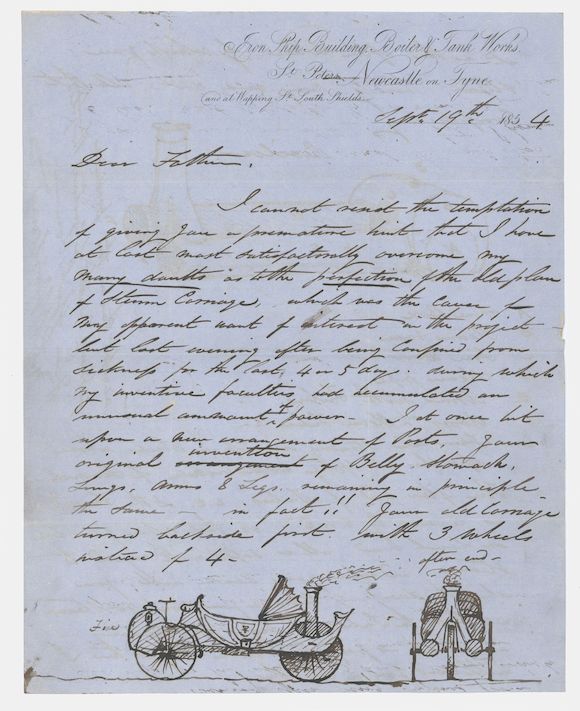 Iron Ship Building, Boiler & Tank Works,
St. Peters, Newcastle on Tyne
(and at Wapping St. South Shields.
Septr. 19th 1854
Dear Father,
I cannot resist the temptation
of giving you a premature hint that I have
at last most satisfactorily overcome my
many doubts as to the perfection of the old plan
of Steam Carriage, which was the cause for
my apparent want of interest in the project -
but last evening after being confined from
sickness for the last 4 or 5 days. during which
my inventive faculties had accumulated an
unusual ammount of power - I at once hit
upon a new arrangement of Parts, Your
original arrangement invention of Belly, Stomach,
Lungs, Arms & Legs, remaining in principle
the same - in fact!! Your old Carriage
turned backside first. with 3 Wheels
instead of 4 -
after end -